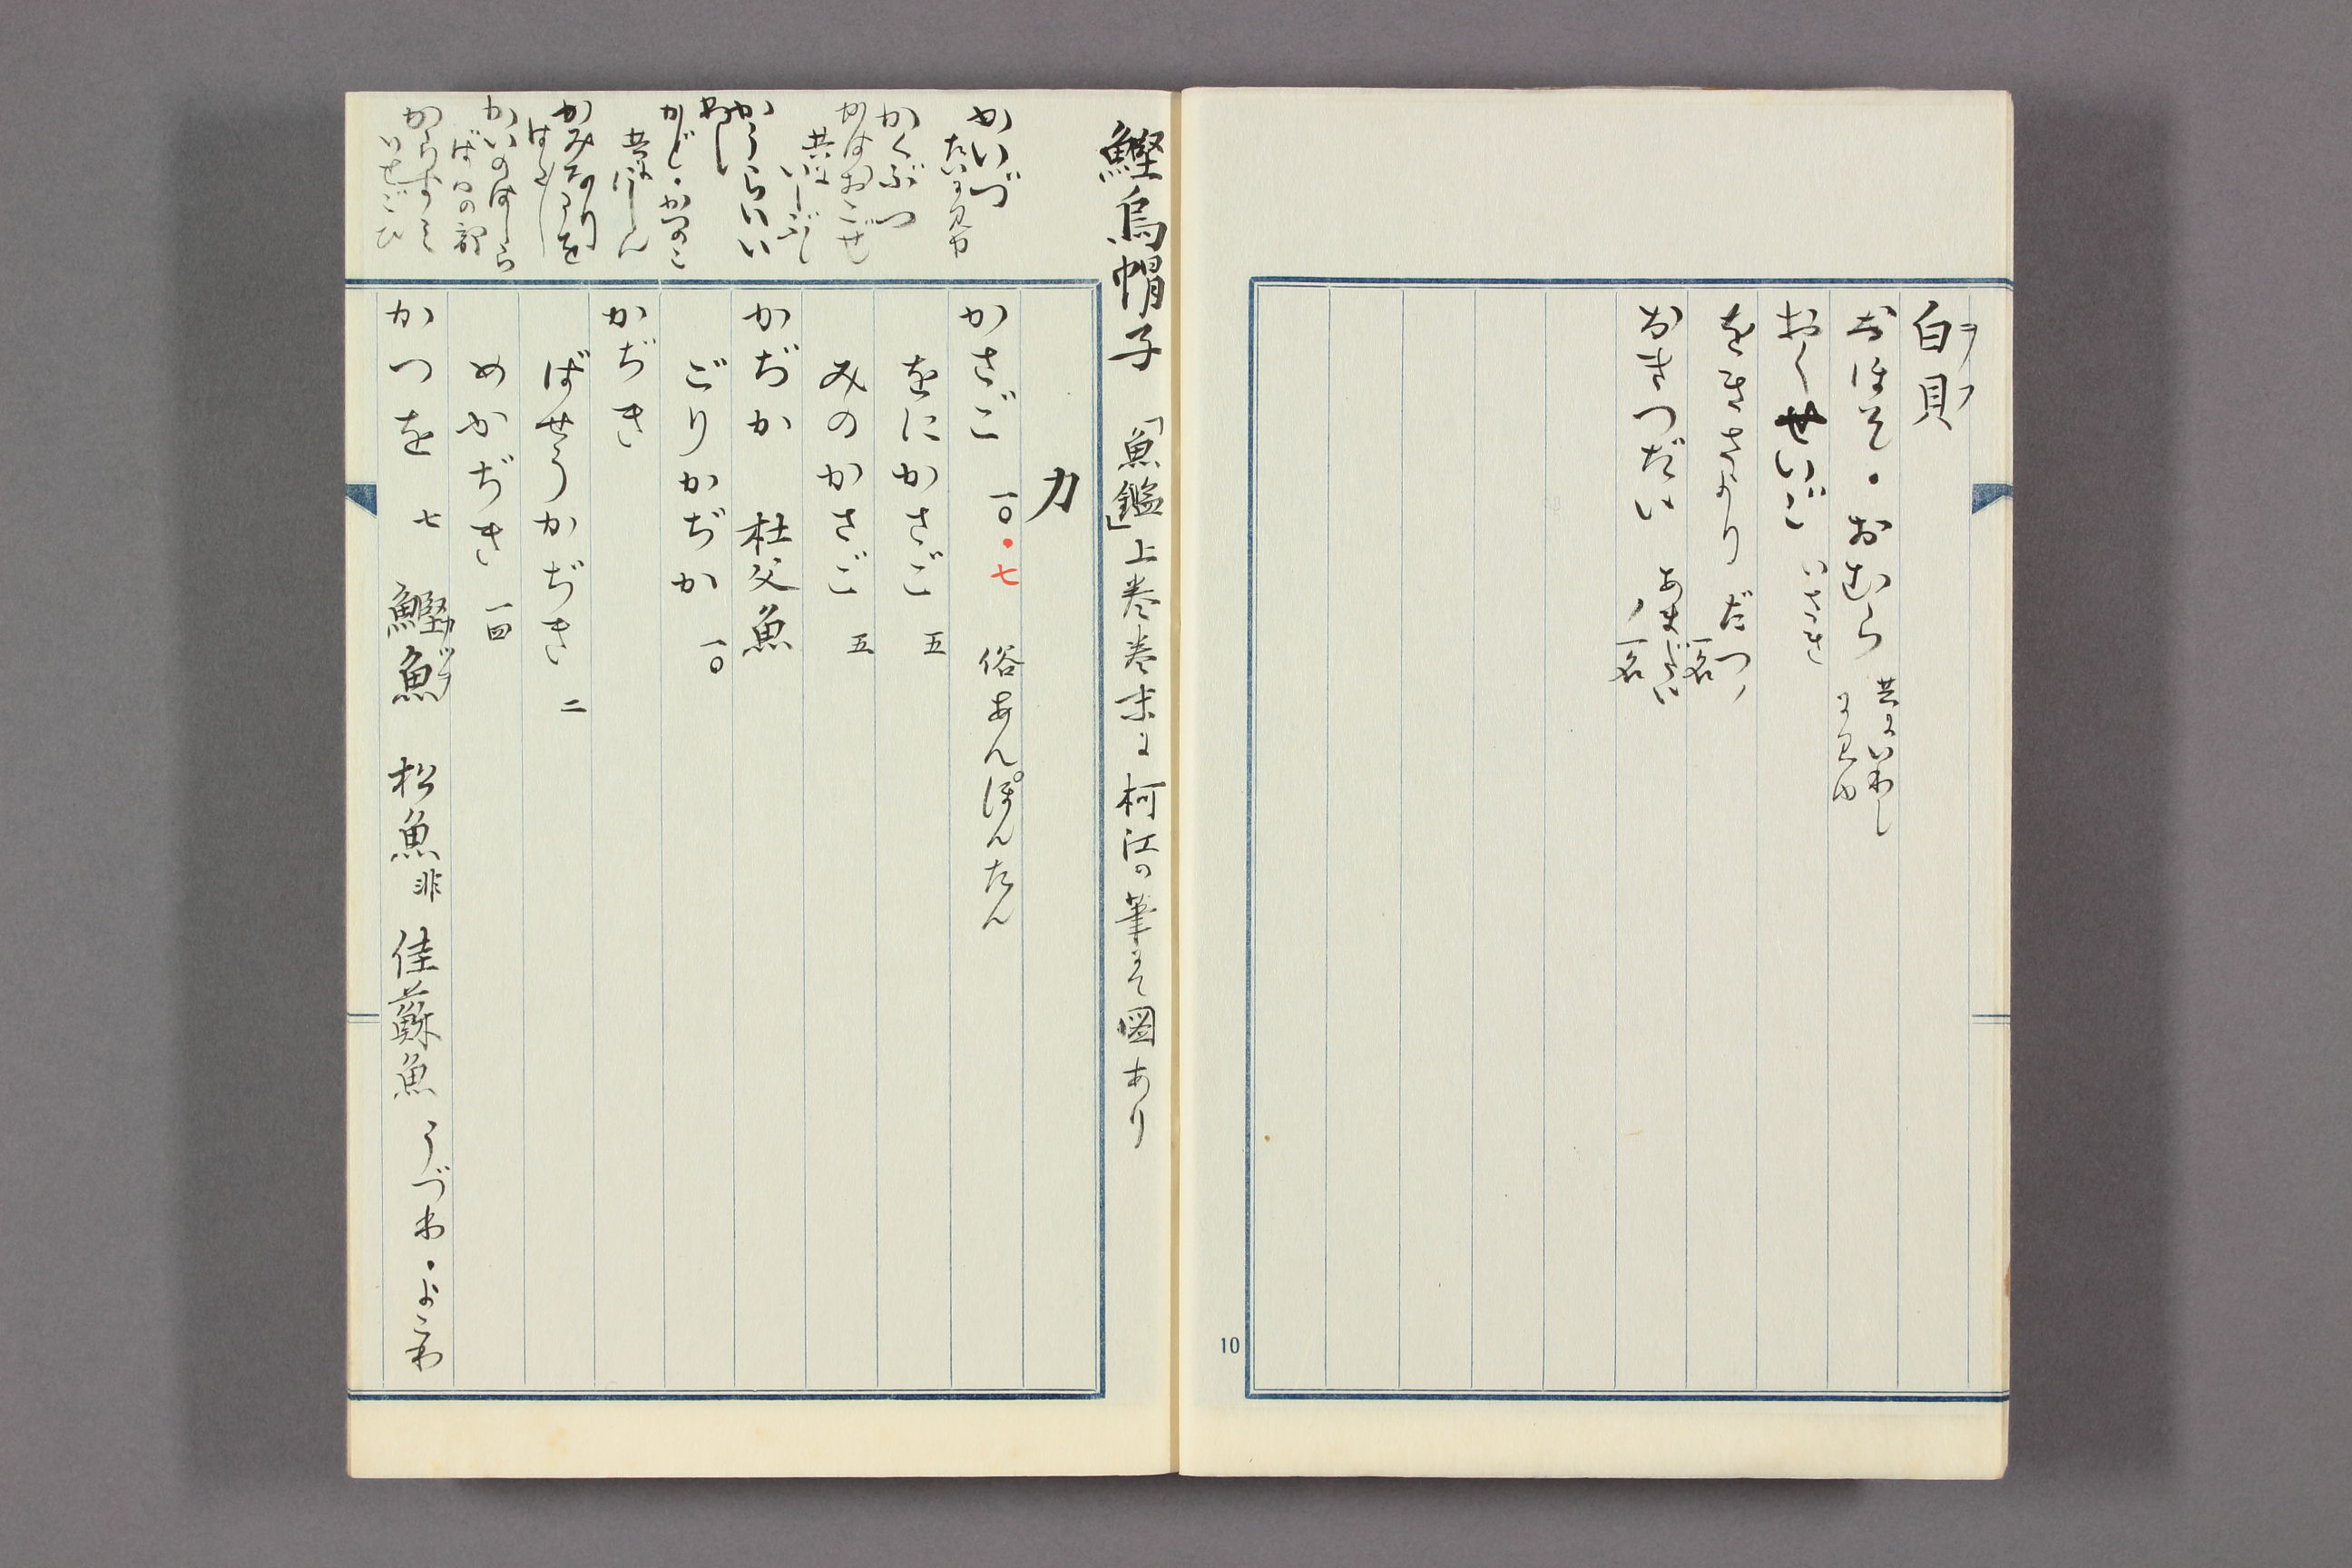 白貝 ヲフ
おほそ・おむら 共にいわし
に見ゆ
おくせいご いさき
をきさより だつノ
一名
おきつだい あまだい
ノ一名
10
鰹烏帽子 「魚鑑」上巻巻末に柯江の筆にて図あり
かいづ
たいに見ゆ
かくぶつ
かはおこぜ
共にいしぶし
かうらいい
わし
かど・かづのこ
共ににしん
かみなりうを
はたはた
かいのはしら
ばかの部
からすみ
カ
かさご 一〇・七 俗あんぽんたん
をにかさご 五
みのかさご 五
かぢか 杜父魚
ごりかぢか 一〇
かぢき
ばせうかぢき 二
めかぢき 一四
かつを 七 鰹魚 カツヲ 松魚非 佳蘇魚 うづわ・よこわ